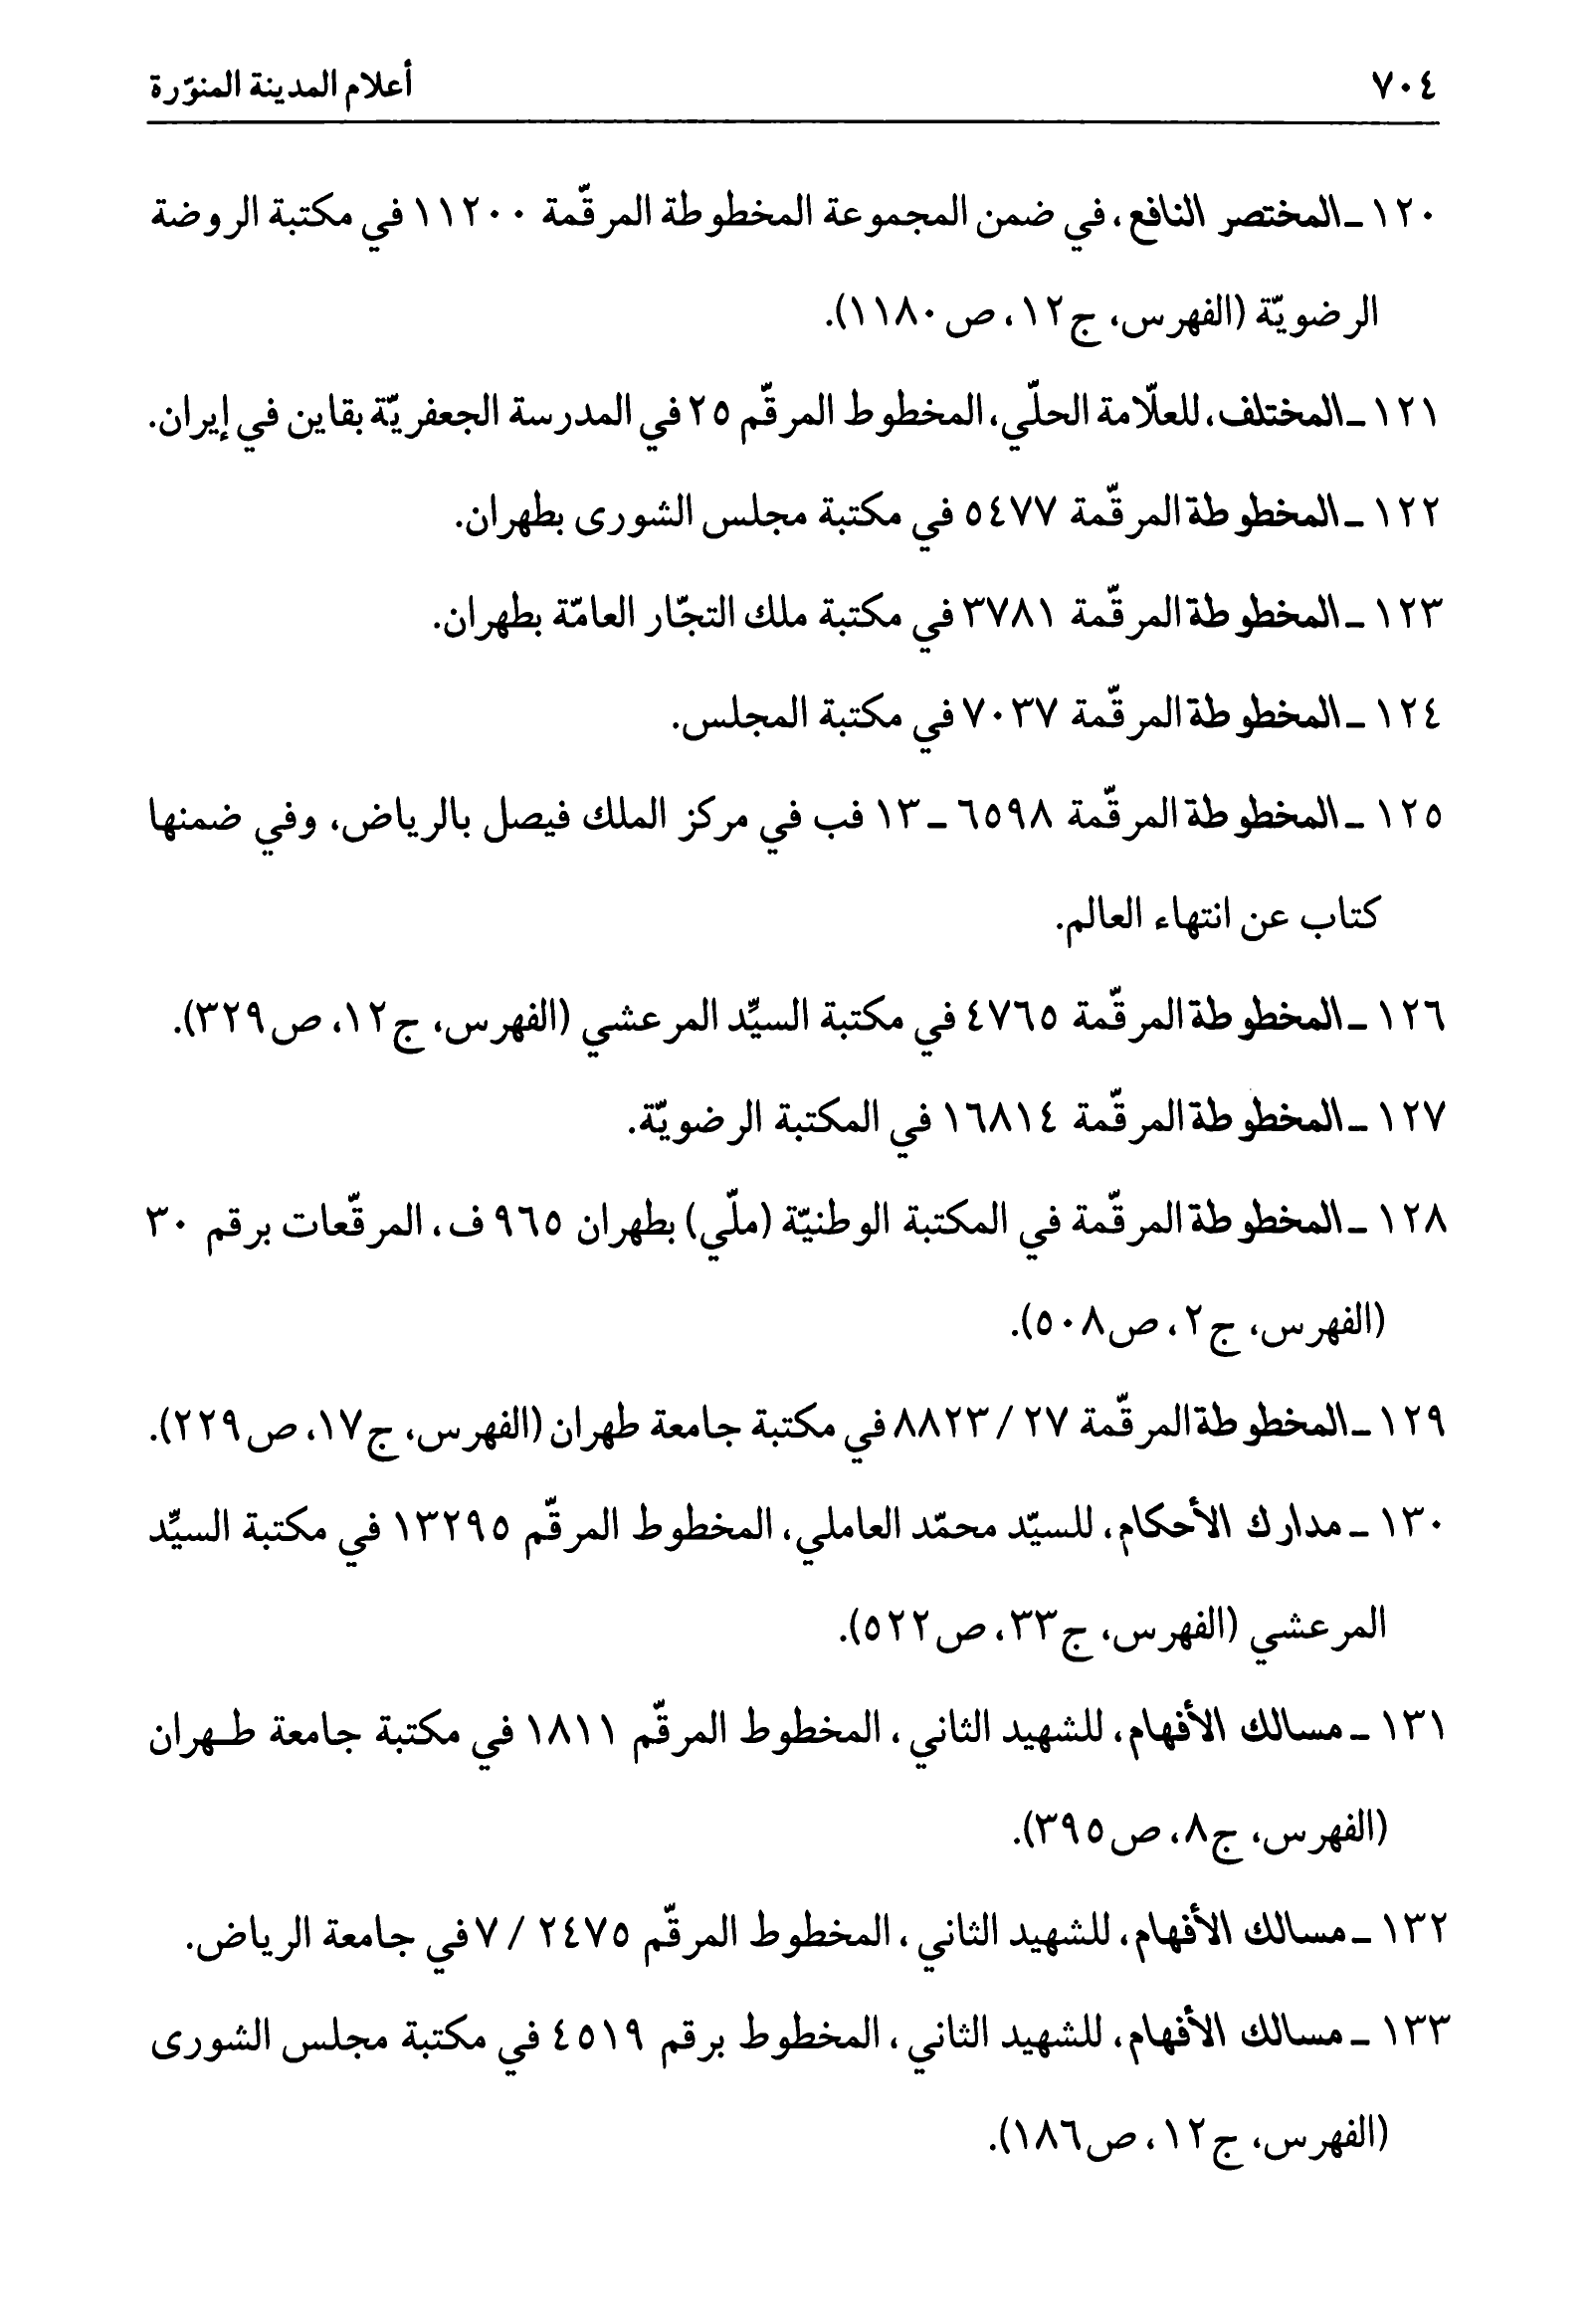 ٧٠٤
أعلام المدينة المنوّرة
١٢٠ ـ المختصر النافع، في ضمن المجموعة المخطوطة المرقّمة ١١٢٠٠ في مكتبة الروضة
الرضويّة (الفهرس، ج١٢، ص١١٨٠).
١٢١ ـ المختلف، للعلّامة الحلّي، المخطوط المرقّم ٢٥ في المدرسة الجعفريّة بقاين في إيران.
١٢٢ ـ المخطوطة المرقّمة ٥٤٧٧ في مكتبة مجلس الشورى بطهران.
١٢٣ ـ المخطوطة المرقّمة ٣٧٨١ في مكتبة ملك التجّار العامّة بطهران.
١٢٤ ـ المخطوطة المرقّمة ٧٠٣٧ في مكتبة المجلس.
١٢٥ ـ المخطوطة المرقّمة ٦٥٩٨ ـ ١٣ فب في مركز الملك فيصل بالرياض، وفي ضمنها
كتاب عن انتهاء العالم.
١٢٦ ـ المخطوطة المرقّمة ٤٧٦٥ في مكتبة السيِّد المرعشي (الفهرس، ج١٢، ص٣٢٩).
١٢٧ ـ المخطوطة المرقّمة ١٦٨١٤ في المكتبة الرضويّة.
١٢٨ ـ المخطوطة المرقّمة في المكتبة الوطنيّة (ملّي) بطهران ٩٦٥ ف، المرقّعات برقم ٣٠
(الفهرس، ج٢، ص٥٠٨).
١٢٩ ـ المخطوطة المرقّمة ٢٧ / ٨٨٢٣ في مكتبة جامعة طهران (الفهرس، ج١٧، ص٢٢٩).
١٣٠ ـ مدارك الأحكام، للسيّد محمّد العاملي، المخطوط المرقّم ١٣٢٩٥ في مكتبة السيِّد
المرعشي (الفهرس، ج٣٣، ص٥٢٢).
١٣١ ـ مسالك الأفهام، للشهيد الثاني، المخطوط المرقّم ١٨١١ في مكتبة جامعة طـهران
(الفهرس، ج٨، ص٣٩٥).
١٣٢ ـ مسالك الأفهام، للشهيد الثاني، المخطوط المرقّم ٢٤٧٥ / ٧ في جامعة الرياض.
١٣٣ ـ مسالك الأفهام، للشهيد الثاني، المخطوط برقم ٤٥١٩ في مكتبة مجلس الشورى
(الفهرس، ج١٢، ص١٨٦).